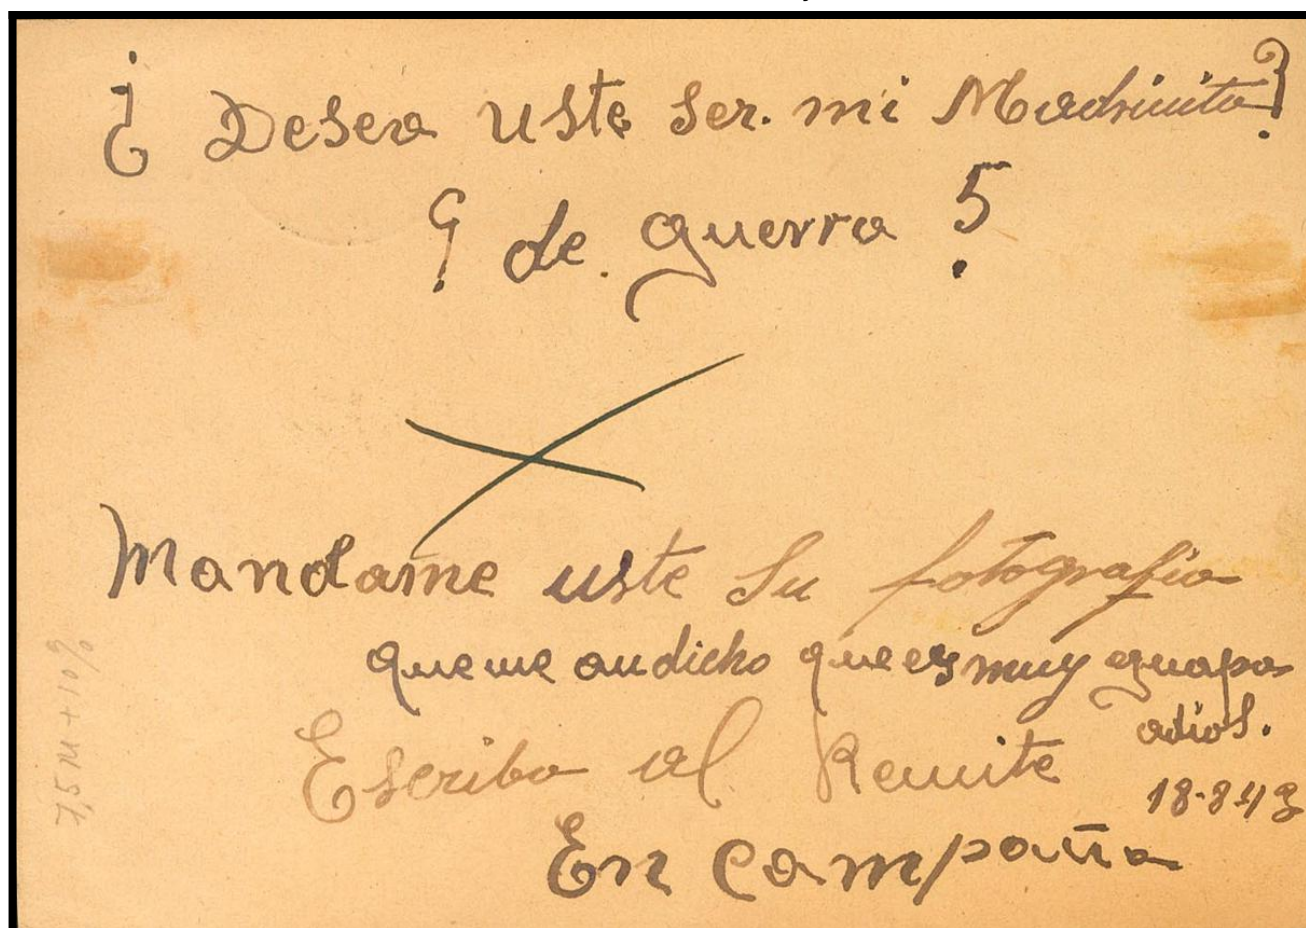 ¿ Desea uste ser. mi Madrinita?
¿ de. guerra ?
Mandame uste su fotografia
que me an dicho que es muy guapa
adios.
Escriba al Remite
18-8-43
En campaña
7,5 M + 10%